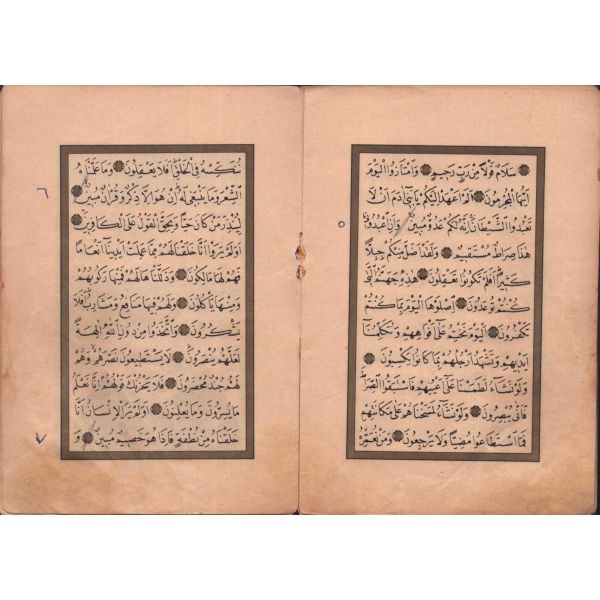 سَلَامٌ قَوْلًا مِنْ رَبٍّ رَحِيمٍ وَامْتَازُوا الْيَوْمَ
اَيُّهَا الْمُجْرِمُونَ اَلَمْ اَعْهَدْ اِلَيْكُمْ يَا بَنِي اٰدَمَ اَنْ لَا
تَعْبُدُوا الشَّيْطَانَ اِنَّهُ لَكُمْ عَدُوٌّ مُبِينٌ وَاَنِ اعْبُدُونِي
هٰذَا صِرَاطٌ مُسْتَقِيمٌ وَلَقَدْ اَضَلَّ مِنْكُمْ جِبِلًّا
كَثِيرًا اَفَلَمْ تَكُونُوا تَعْقِلُونَ هٰذِهِ جَهَنَّمُ الَّتِي
كُنْتُمْ تُوعَدُونَ اِصْلَوْهَا الْيَوْمَ بِمَا كُنْتُمْ
تَكْفُرُونَ اَلْيَوْمَ نَخْتِمُ عَلٰى اَفْوَاهِهِمْ وَتُكَلِّمُنَا
اَيْدِيهِمْ وَتَشْهَدُ اَرْجُلُهُمْ بِمَا كَانُوا يَكْسِبُونَ
وَلَوْ نَشَاءُ لَطَمَسْنَا عَلٰى اَعْيُنِهِمْ فَاسْتَبَقُوا الصِّرَاطَ
فَاَنّٰى يُبْصِرُونَ وَلَوْ نَشَاءُ لَمَسَخْنَاهُمْ عَلٰى مَكَانَتِهِمْ
فَمَا اسْتَطَاعُوا مُضِيًّا وَلَا يَرْجِعُونَ وَمَنْ نُعَمِّرْهُ
٥
نُنَكِّسْهُ فِي الْخَلْقِ اَفَلَا يَعْقِلُونَ وَمَا عَلَّمْنَاهُ
الشِّعْرَ وَمَا يَنْبَغِي لَهُ اِنْ هُوَ اِلَّا ذِكْرٌ وَقُرْاٰنٌ مُبِينٌ
لِيُنْذِرَ مَنْ كَانَ حَيًّا وَيَحِقَّ الْقَوْلُ عَلَى الْكَافِرِينَ
اَوَلَمْ يَرَوْا اَنَّا خَلَقْنَا لَهُمْ مِمَّا عَمِلَتْ اَيْدِينَا اَنْعَامًا
فَهُمْ لَهَا مَالِكُونَ وَذَلَّلْنَاهَا لَهُمْ فَمِنْهَا رَكُوبُهُمْ
وَمِنْهَا يَأْكُلُونَ وَلَهُمْ فِيهَا مَنَافِعُ وَمَشَارِبُ اَفَلَا
يَشْكُرُونَ وَاتَّخَذُوا مِنْ دُونِ اللّٰهِ اٰلِهَةً
لَعَلَّهُمْ يُنْصَرُونَ لَا يَسْتَطِيعُونَ نَصْرَهُمْ وَهُمْ
لَهُمْ جُنْدٌ مُحْضَرُونَ فَلَا يَحْزُنْكَ قَوْلُهُمْ اِنَّا نَعْلَمُ
مَا يُسِرُّونَ وَمَا يُعْلِنُونَ اَوَلَمْ يَرَ الْاِنْسَانُ اَنَّا
خَلَقْنَاهُ مِنْ نُطْفَةٍ فَاِذَا هُوَ خَصِيمٌ مُبِينٌ وَ
٦
٧